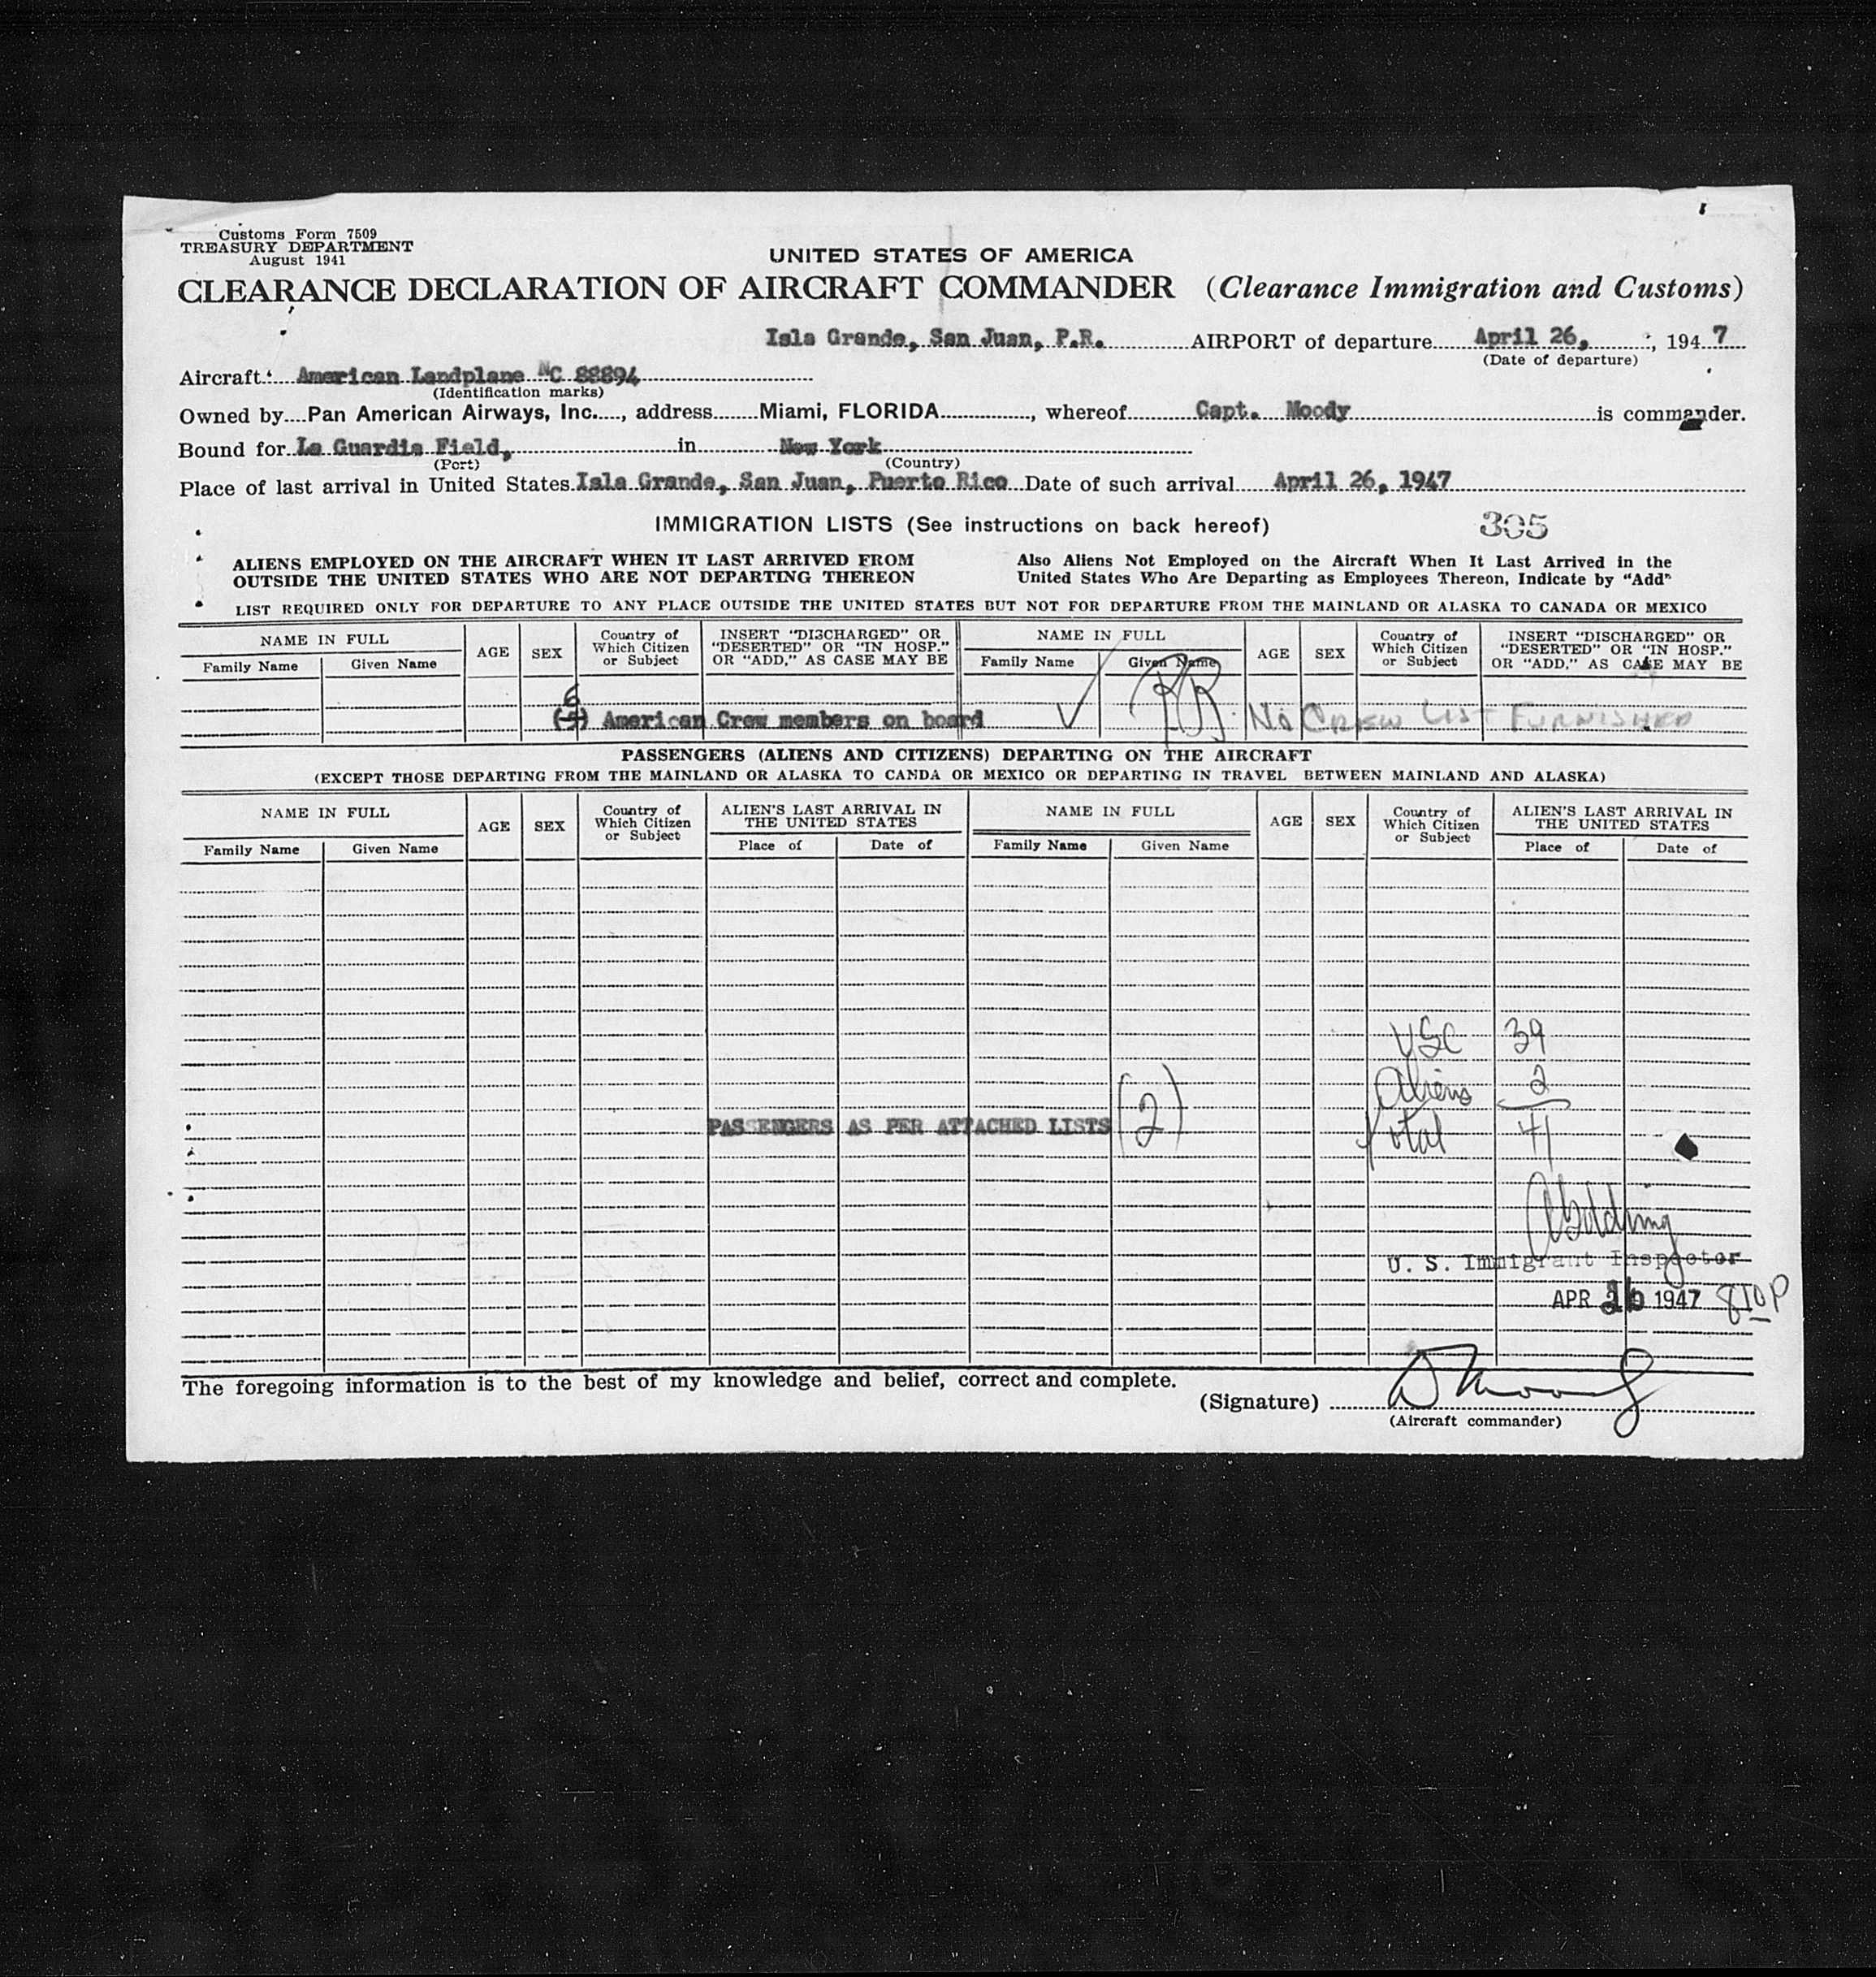 Customs Form 7509
TREASURY DEPARTMENT
August 1941
UNITED STATES OF AMERICA
CLEARANCE DECLARATION OF AIRCRAFT COMMANDER (Clearance Immigration and Customs)
Isla Grande, San Juan, P.R. AIRPORT of departure April 26, , 194 7
(Date of departure)
Aircraft American Landplane NC 88894
(Identification marks)
Owned by Pan American Airways, Inc. , address Miami, FLORIDA , whereof Capt. Moody is commander.
Bound for La Guardia Field, in New York
(Port) (Country)
Place of last arrival in United States Isla Grande, San Juan, Puerto Rico Date of such arrival April 26, 1947
IMMIGRATION LISTS (See instructions on back hereof) 305
ALIENS EMPLOYED ON THE AIRCRAFT WHEN IT LAST ARRIVED FROM
OUTSIDE THE UNITED STATES WHO ARE NOT DEPARTING THEREON
Also Aliens Not Employed on the Aircraft When It Last Arrived in the
United States Who Are Departing as Employees Thereon, Indicate by "Add"
LIST REQUIRED ONLY FOR DEPARTURE TO ANY PLACE OUTSIDE THE UNITED STATES BUT NOT FOR DEPARTURE FROM THE MAINLAND OR ALASKA TO CANADA OR MEXICO
NAME IN FULL
Family Name Given Name
AGE
SEX
Country of
Which Citizen
or Subject
INSERT "DISCHARGED" OR
"DESERTED" OR "IN HOSP."
OR "ADD," AS CASE MAY BE
NAME IN FULL
Family Name Given Name
AGE
SEX
Country of
Which Citizen
or Subject
INSERT "DISCHARGED" OR
"DESERTED" OR "IN HOSP."
OR "ADD," AS CASE MAY BE
6
American Crew members on board No CREW LIST FURNISHED
PASSENGERS (ALIENS AND CITIZENS) DEPARTING ON THE AIRCRAFT
(EXCEPT THOSE DEPARTING FROM THE MAINLAND OR ALASKA TO CANDA OR MEXICO OR DEPARTING IN TRAVEL BETWEEN MAINLAND AND ALASKA)
NAME IN FULL
Family Name Given Name
AGE
SEX
Country of
Which Citizen
or Subject
ALIEN'S LAST ARRIVAL IN
THE UNITED STATES
Place of Date of
NAME IN FULL
Family Name Given Name
AGE
SEX
Country of
Which Citizen
or Subject
ALIEN'S LAST ARRIVAL IN
THE UNITED STATES
Place of Date of
USC 39
Aliens 2
PASSENGERS AS PER ATTACHED LISTS (2)
Total 41
U. S. Immigrant Inspector
APR 26 1947 810P
The foregoing information is to the best of my knowledge and belief, correct and complete.
(Signature) D Moody
(Aircraft commander)